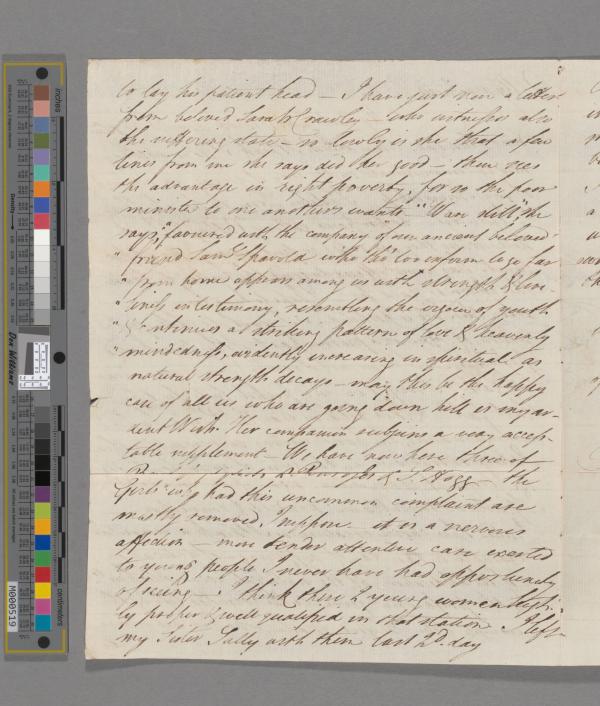 to lay his patient head – I have just now a letter
from beloved Sarah Crawley – who witnesses also
the suffering state – so lowly is she that a few
lines from me she says did her good – then see
the advantage in right poverty, for so the poor
minister to one another's wants – "We are still," she
says, "favoured with the company of our ancient beloved
" friend Saml Spavold who tho' too infirm to go far
" from home appears among us with strength & live
" liness in testimony, resembling the vigour of youth
" & continues a striking pattern of love & heavenly
" mindedness, evidently increasing in spiritual as
natural strength decays – may this be the happy
case of all us who are going down hill is my ar-
dent Wish. Her companion subjoins a very accep-
table supplement – We have now here three of
& S. Hogg – the
Girls who had this uncommon complaint are
mostly removed, I suppose it is a nervous
affection – more tender attentive care exerted
to young people I never have had opportunity
of seeing – I think these 2 young women high-
ly proper & well qualified in that station I left
my Sister Sally with them last 2d. day
M000519
inches
centimetres
Don Williams
Density